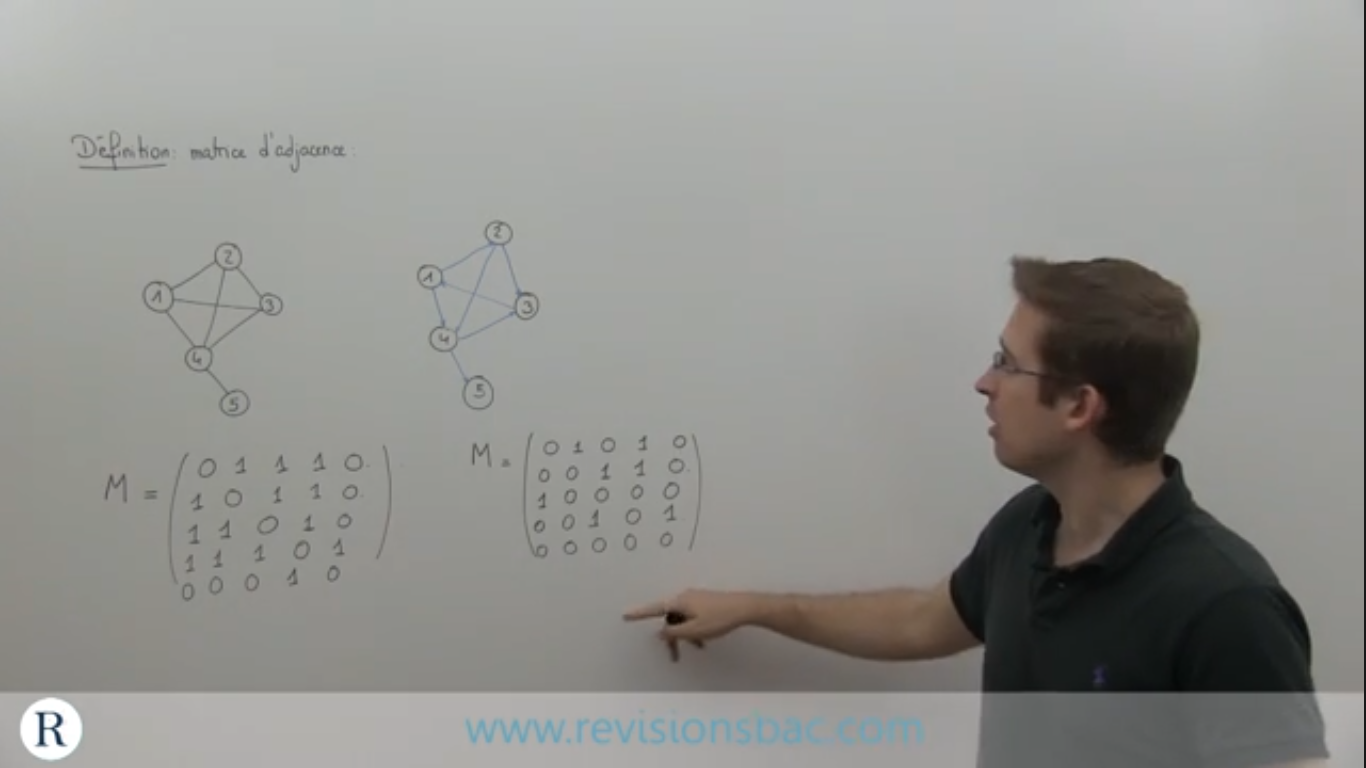 Définition: matrice d'adjacence:
2
1
3
4
5
2
1
3
4
5
M = ( 0 1 1 1 0
1 0 1 1 0
1 1 0 1 0
1 1 1 0 1
0 0 0 1 0 )
M = ( 0 1 0 1 0
0 0 1 1 0
1 0 0 0 0
0 0 1 0 1
0 0 0 0 0 )
R
www.revisionsbac.com